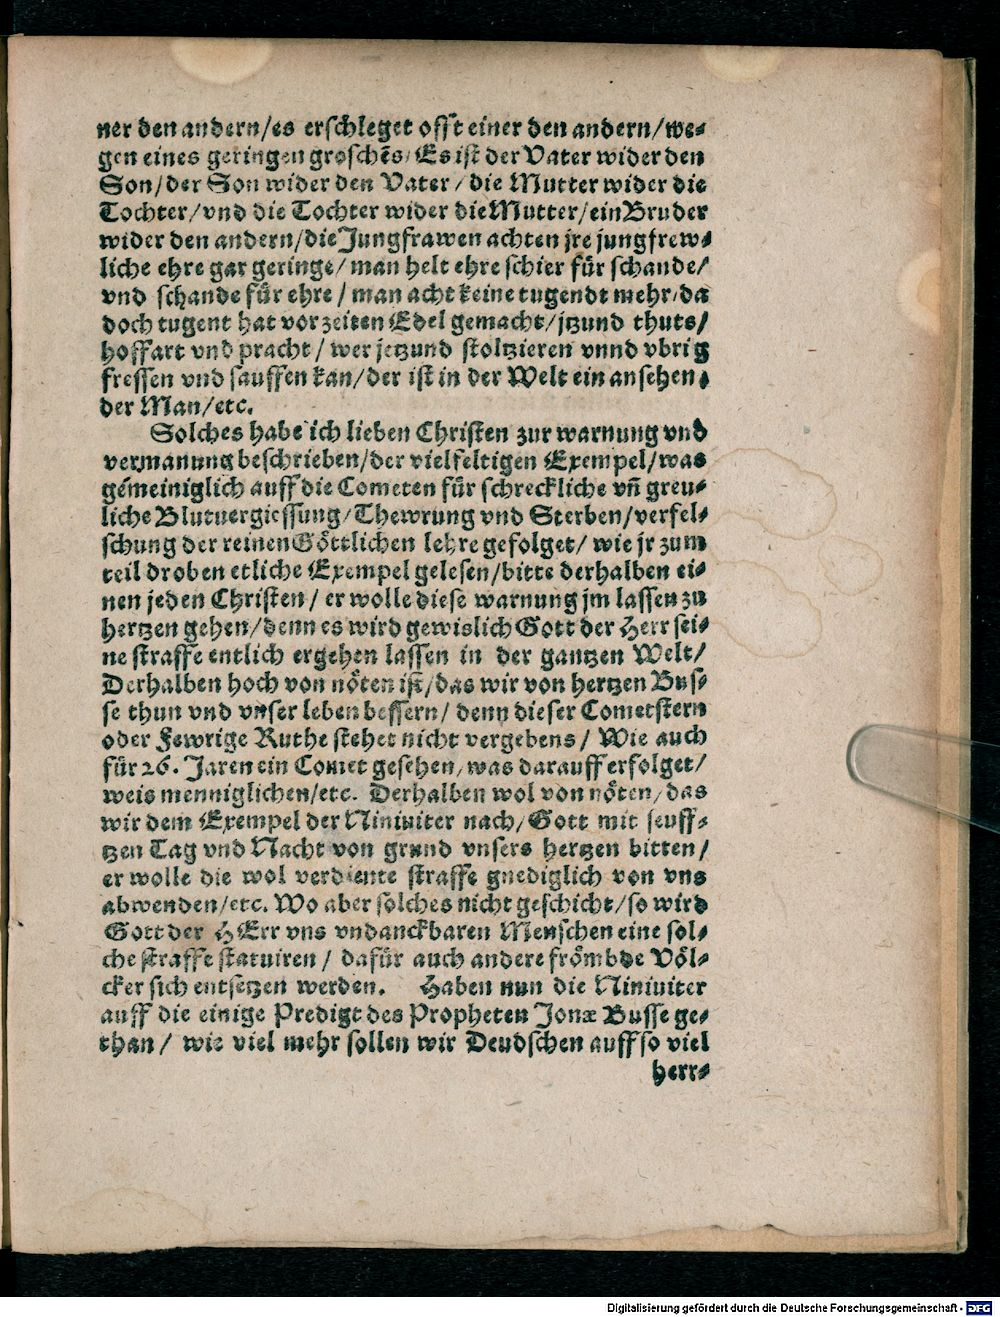 ner den andern/es erschleget offt einer den andern/we⸗
gen eines geringen groschēs/Es ist der Vater wider den
Son/der Son wider den Vater/die Mutter wider die
Tochter/vnd die Tochter wider die Mutter/ein Bruder
wider den andern/die Jungfrawen achten jre jungfrew⸗
liche ehre gar geringe/man helt ehre schier für schande/
vnd schande für ehre/man acht keine tugendt mehr/da
doch tugent hat vor zeiten Edel gemacht/jtzund thuts/
hoffart vnd pracht/wer jetzund stoltzieren vnnd vbrig
fressen vnd sauffen kan/der ist in der Welt ein ansehen⸗
der Man/etc.
Solches habe ich lieben Christen zur warnung vnd
vermanung beschrieben/der vielfeltigen Exempel/was
gemeiniglich auff die Cometen für schreckliche vñ greu⸗
liche Blutuergiessung/Thewrung vnd Sterben/verfel⸗
schung der reinen Göttlichen lehre gefolget/wie jr zum
teil droben etliche Exempel gelesen/bitte derhalben ei⸗
nen jeden Christen/er wolle diese warnung jm lassen zu
hertzen gehen/denn es wird gewislich Gott der Herr sei⸗
ne straffe entlich ergehen lassen in der gantzen Welt/
Derhalben hoch von nöten ist/das wir von hertzen Bus⸗
se thun vnd vnser leben bessern/denn dieser Cometstern
oder Fewrige Ruthe stehet nicht vergebens/Wie auch
für 26. Jaren ein Comet gesehen/was darauff erfolget/
weis menniglichen/etc. Derhalben wol von nöten/das
wir dem Exempel der Niniuiter nach/Gott mit seuff⸗
tzen Tag vnd Nacht von grund vnsers hertzen bitten/
er wolle die wol verdiente straffe gnediglich von vns
abwenden/etc. Wo aber solches nicht geschicht/so wird
Gott der HErr vns vndanckbaren Menschen eine sol⸗
che straffe statuiren/dafür auch andere frömbde Völ⸗
cker sich entsetzen werden. Haben nun die Niniuiter
auff die einige Predigt des Propheten Jonæ Busse ge⸗
than/wie viel mehr sollen wir Deudschen auff so viel
herr⸗
Digitalisierung gefördert durch die Deutsche Forschungsgemeinschaft - DFG